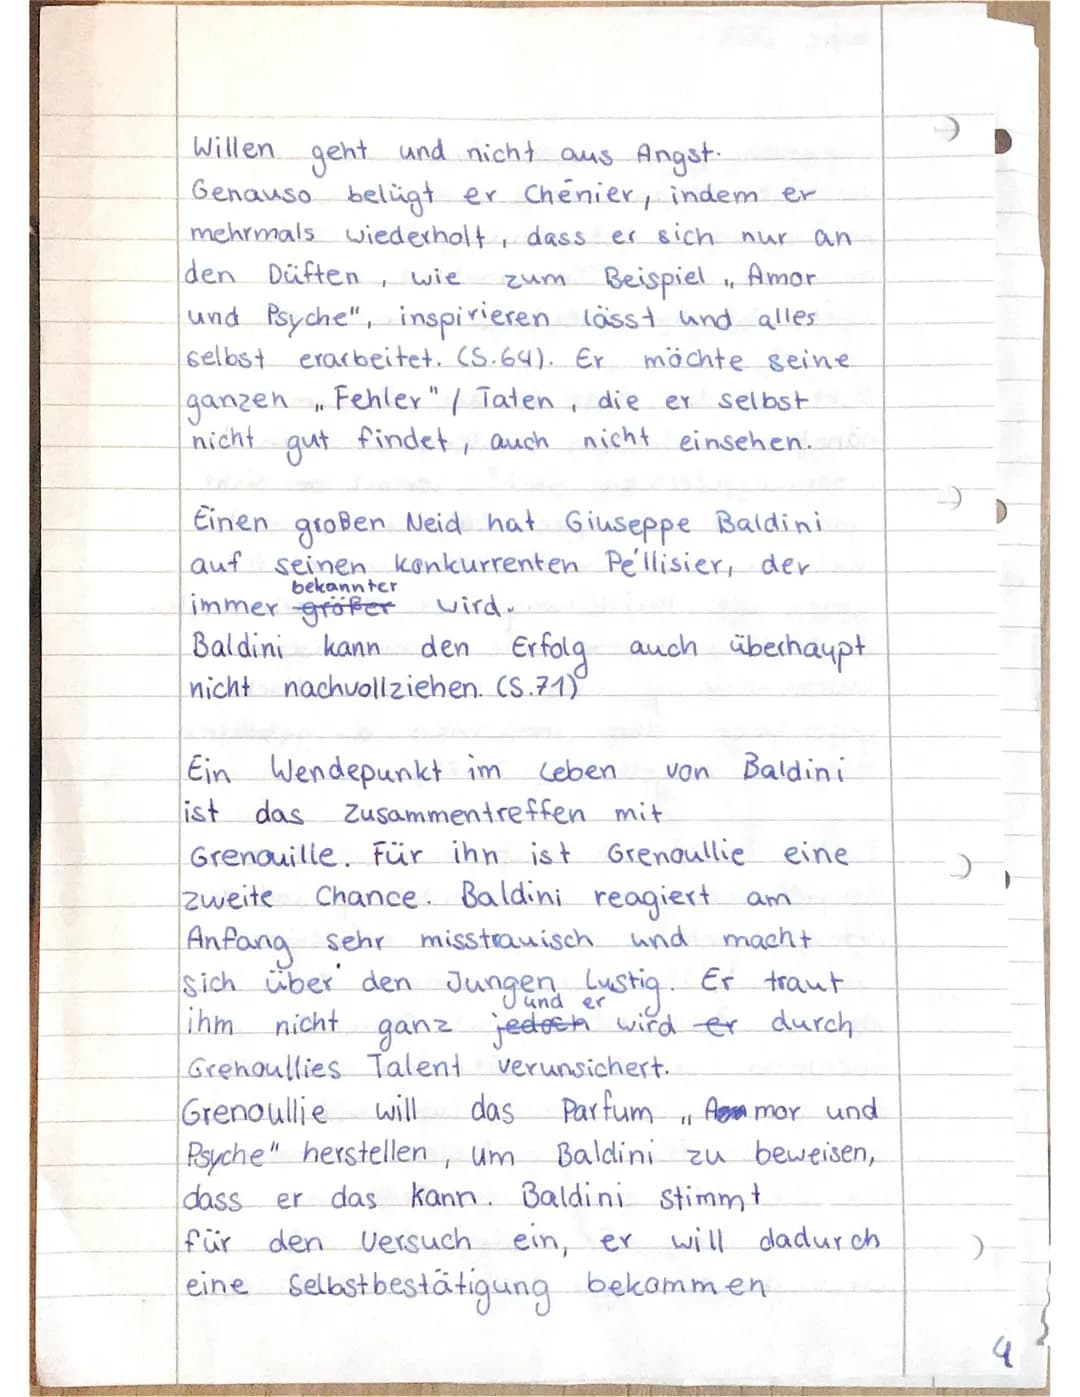 Willen geht und nicht aus Angst.
Genauso belügt er Chénier, indem er
mehrmals wiederholt, dass er sich nur an
den Düften, wie zum Beispiel „Amor
und Psyche", inspirieren lässt und alles
selbst erarbeitet. (S.64). Er möchte seine
ganzen „Fehler" / Taten, die er selbst
nicht gut findet, auch nicht einsehen.
Einen großen Neid hat Giuseppe Baldini
auf seinen Konkurrenten Péllisier, der
bekannter
immer größer wird.
Baldini kann den Erfolg auch überhaupt
nicht nachvollziehen. (S.71)
Ein Wendepunkt im Leben von Baldini
ist das Zusammentreffen mit
Grenouille. Für ihn ist Grenoullie eine
zweite Chance. Baldini reagiert am
Anfang sehr misstrauisch und macht
sich über den Jungen lustig. Er traut
und er
ihm nicht ganz jedoch wird er durch
Grenoullies Talent verunsichert.
Grenoullie will das Parfum „Ammor und
Psyche" herstellen, um Baldini zu beweisen,
dass er das kann. Baldini stimmt
für den Versuch ein, er will dadurch
eine Selbstbestätigung bekommen
4